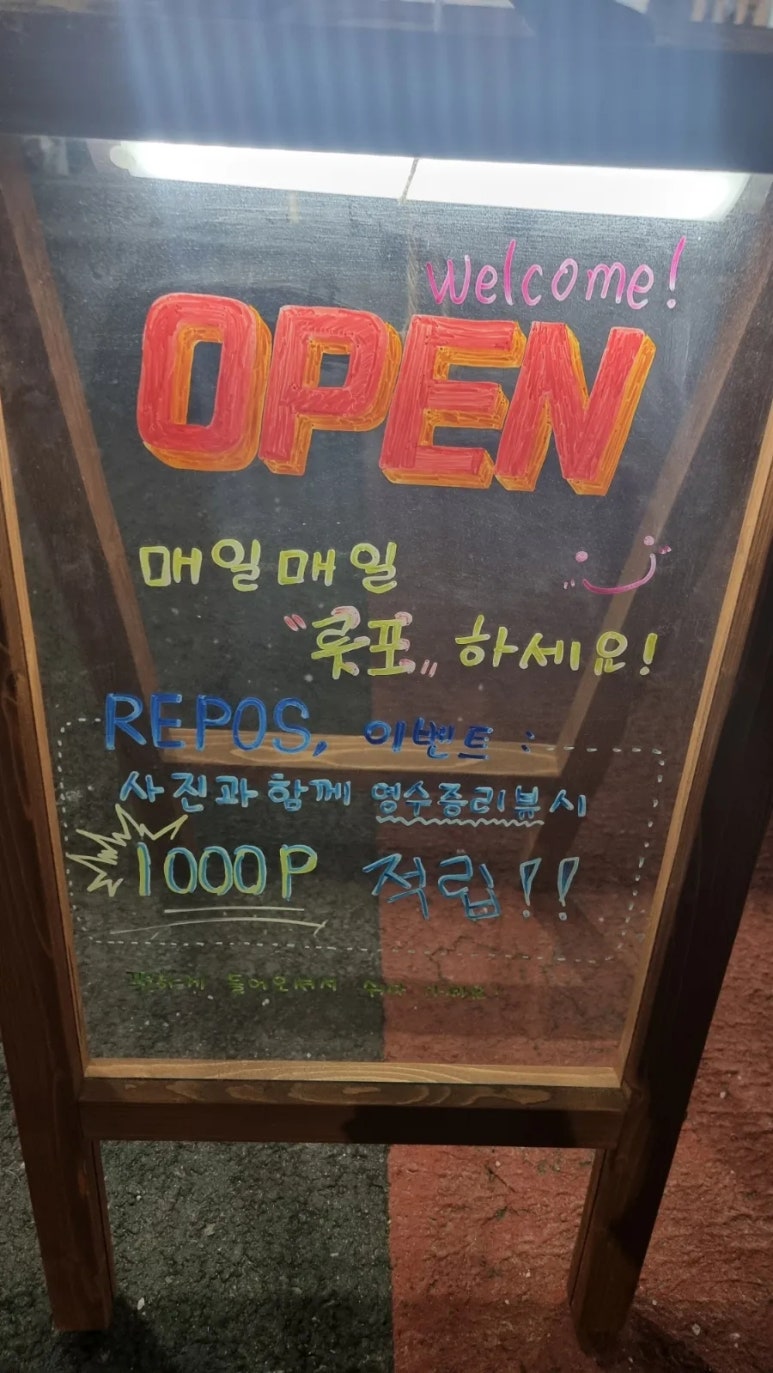 welcome!
OPEN
매일매일
"롯포" 하세요!
REPOS, 이벤트 :
사진과함께 영수증리뷰시
1000P 적립!!
들어오셔서